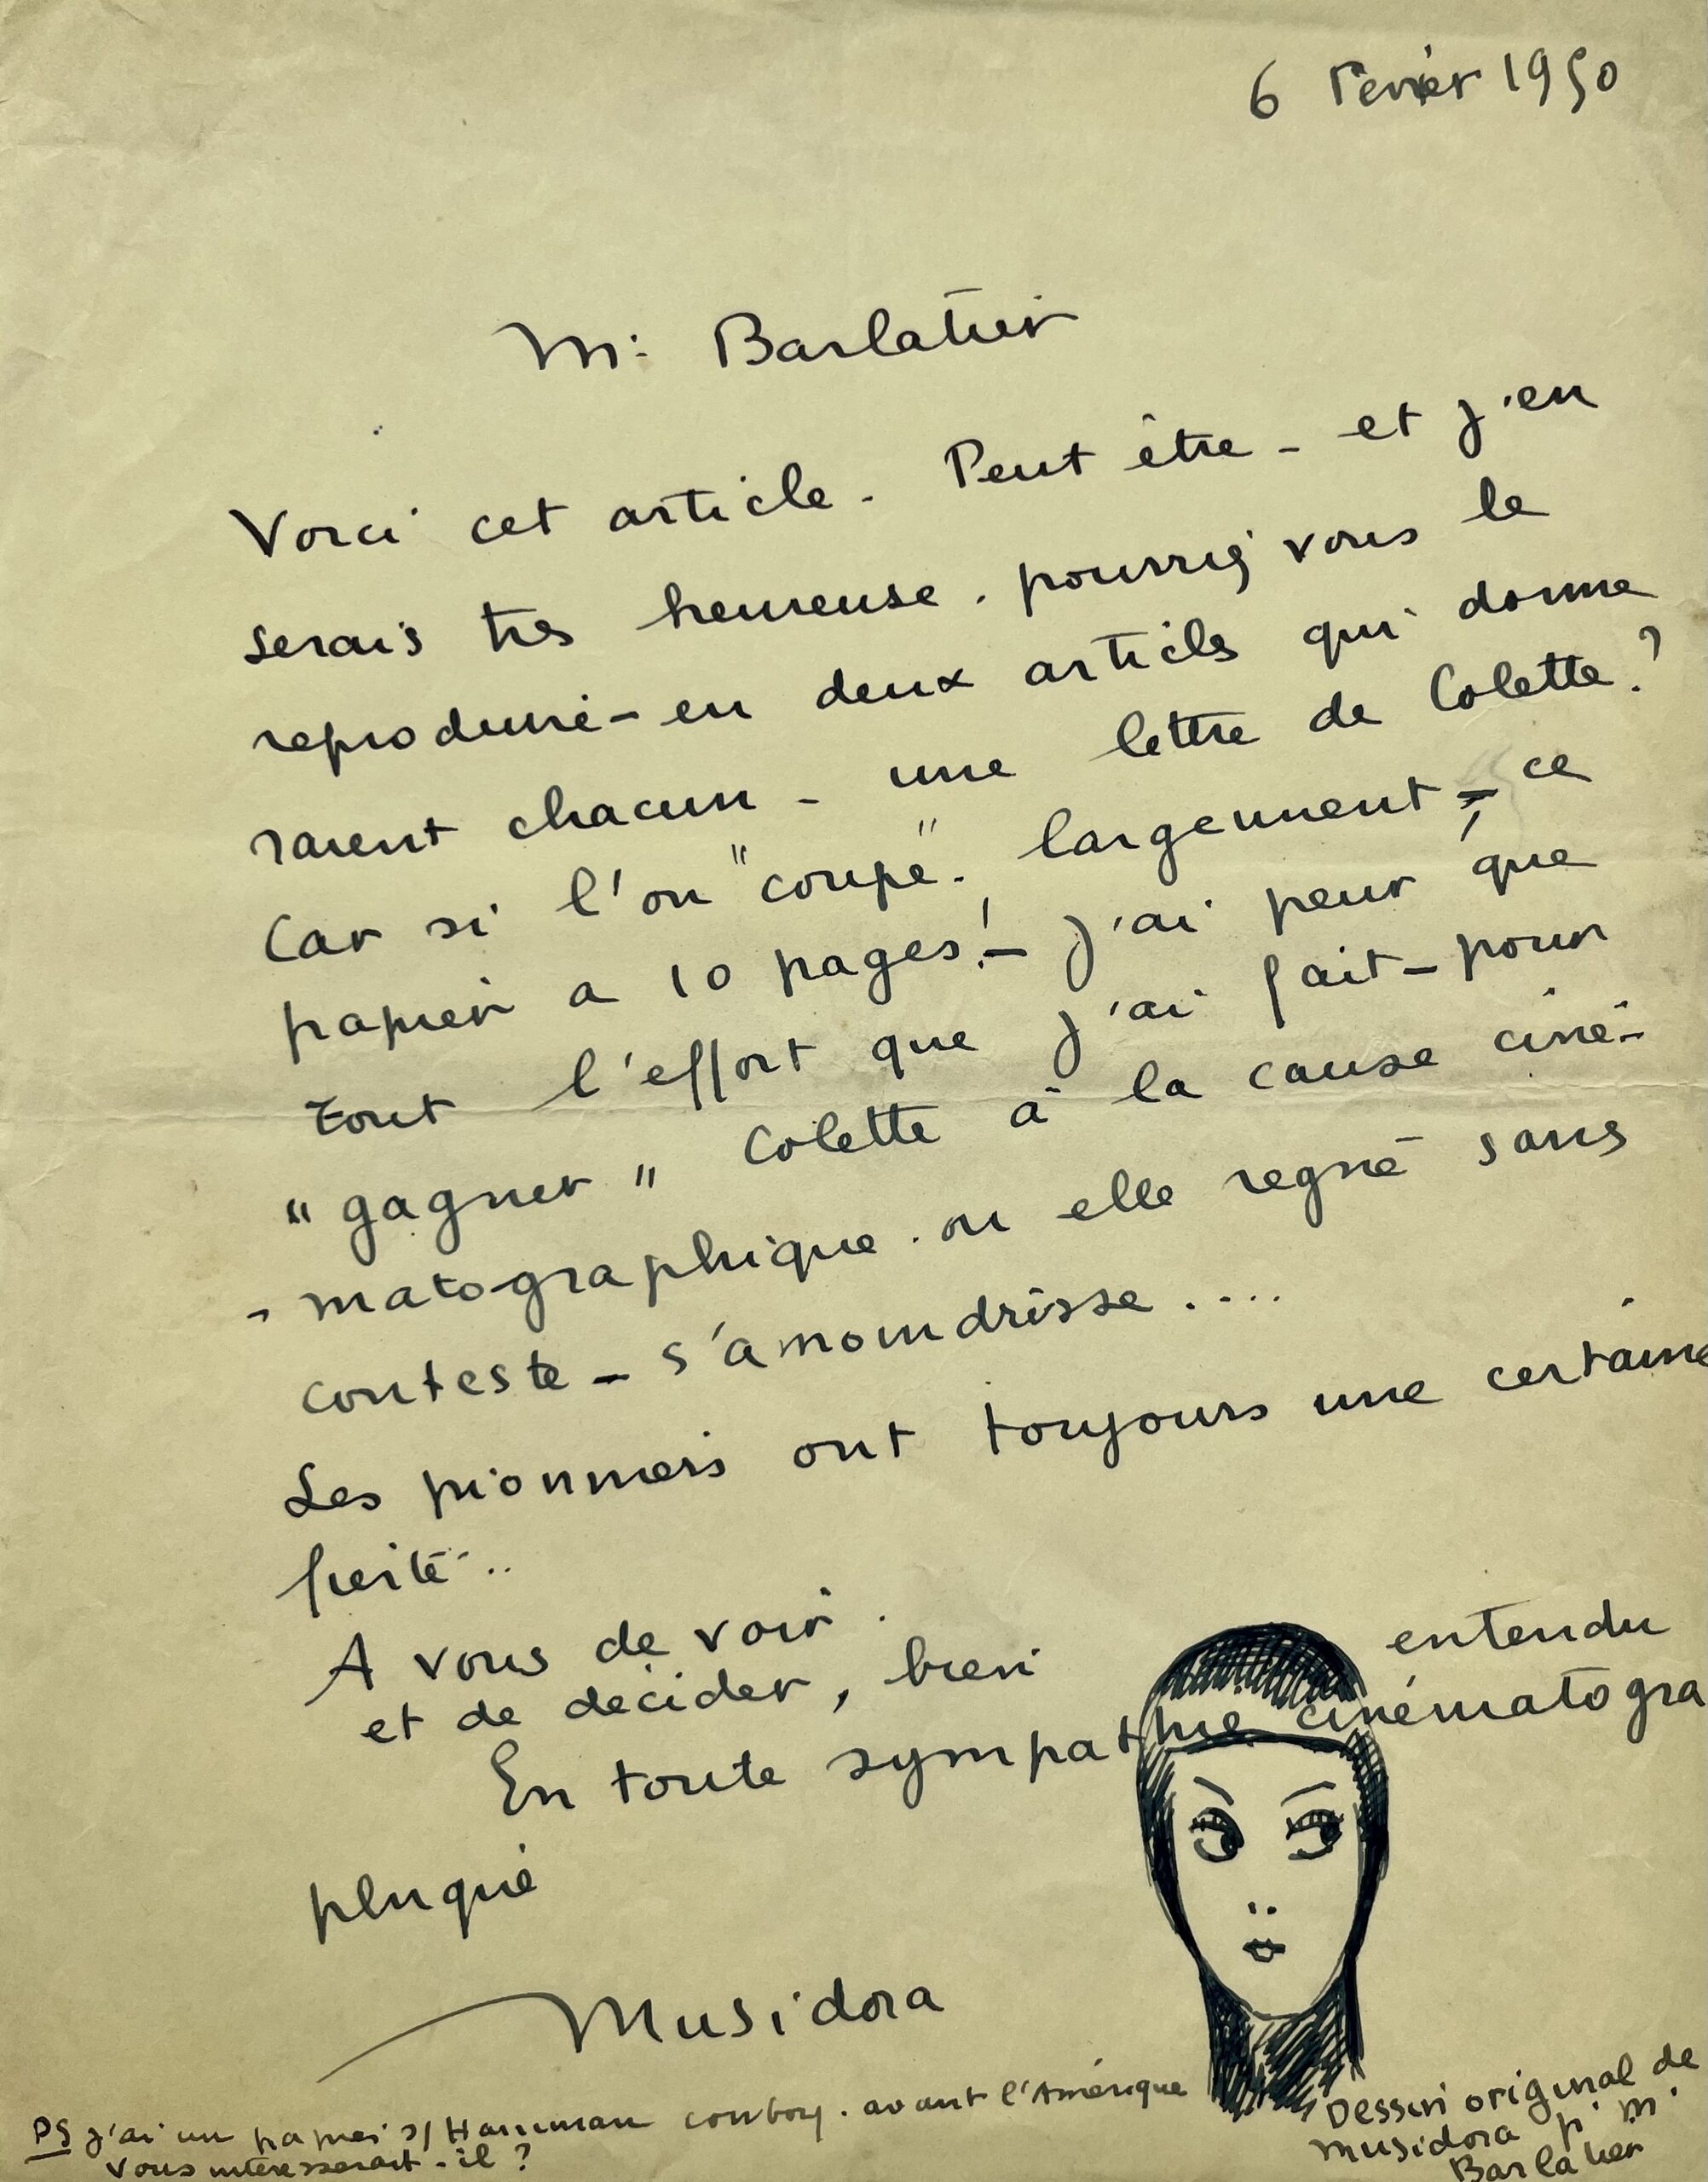 6 Février 1950
Mr: Barlatier
Voici cet article. Peut être - et j'en
serais très heureuse. pourriez vous le
reproduire - en deux articles qui donne
raient chacun - une lettre de Colette?
Car si l'on "coupe". largement - ce
papier a 10 pages! - j'ai peur que
tout l'effort que j'ai fait - pour
"gagner" Colette à la cause ciné-
-matographique. ou elle regne sans
conteste - s'amoindrisse....
Les pionniers ont toujours une certaine
fierté...
A vous de voir.
et de décider, bien entendu
En toute sympathie cinématogra
phique
Musidora
PS j'ai un papier s/ Hamman cowboy. avant l'Amérique
vous intéresserait-il?
Dessin original de
Musidora p. M.
Barlatier